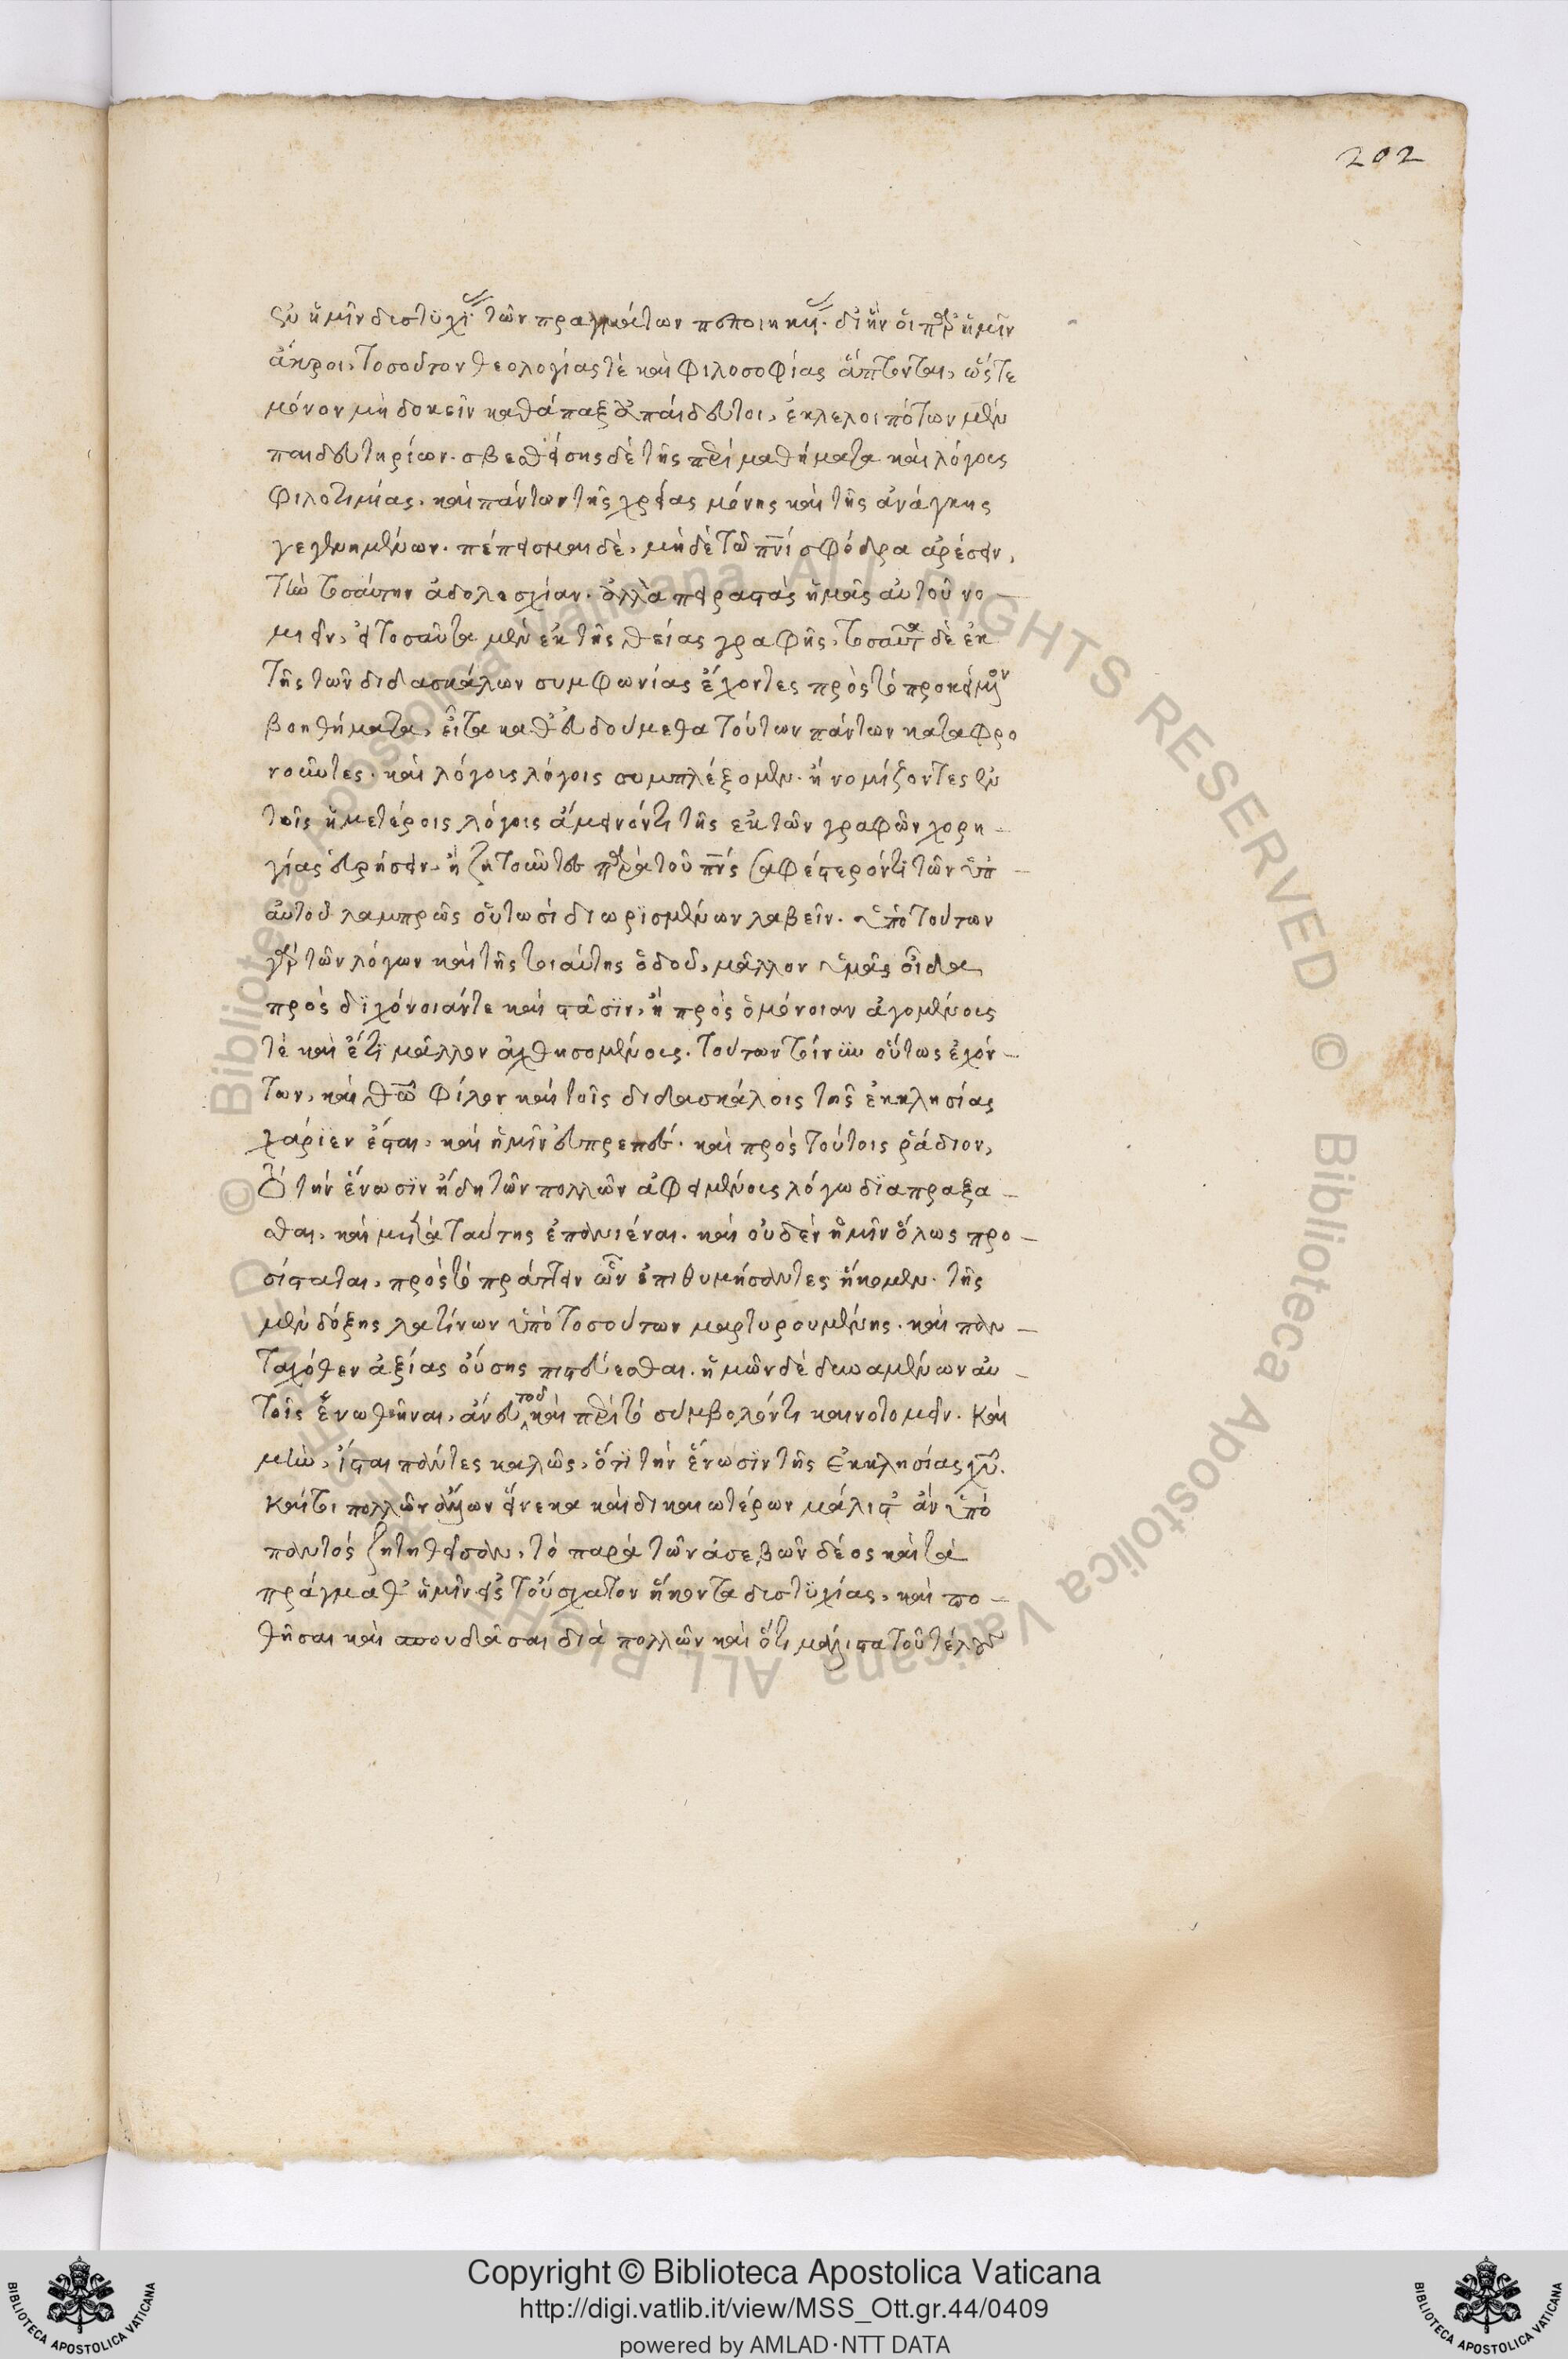 202
ξὺ ἡμῖν δυστυχί τῶν πραγμάτων πεποιηκη. δι' ἣν οἱ παρ' ἡμῖν
ἄκροι, τοσοῦτον θεολογίας τὲ καὶ φιλοσοφίας ἅπτονται, ὥστε
μόνον μὴ δοκεῖν καθάπαξ ἀπαίδευτοι, ἐκλελοιπότων μὲν
παιδευτηρίων. σβεσθείσης δὲ τῆς περὶ μαθήματα καὶ λόγους
φιλοτιμίας. καὶ πάντων τῆς χρείας μόνης καὶ τῆς ἀνάγκης
γεγενημένων. πέπεισμαι δὲ, μὴδὲ τῶ πνι σφόδρα ἀρέσειν,
τὴν τοσαύτην ἀδολεσχίαν. ἀλλὰ πειραστὰς ἡμᾶς αὐτοῦ νο-
μιεῖν, εἰ τοσαῦτα μὲν ἐκ τῆς θείας γραφῆς, τοσαῦτα δὲ ἐκ
τῆς τῶν διδασκάλων συμφωνίας ἔχοντες πρὸς τὸ προκείμενον
βοηθήματα, εἶτα καθευδούμεθα τούτων πάντων καταφρο
νοῦντες. καὶ λόγους λόγοις συμπλέξομεν. ἢ νομίζοντες ἐν
τοῖς ἡμετέροις λόγοις ἄμεινόν τι τῆς ἐκ τῶν γραφῶν χορη-
γίας εὑρήσειν. ἢ ζητοῦντες παρὰ τοῦ πνς σαφέστερόν τι τῶν ὑπ'
αὐτοῦ λαμπρῶς οὑτωσὶ διωρισμένων λαβεῖν. ὑπὸ τούτων
γὰρ τῶν λόγων καὶ τῆς τοιαύτης ὁδοῦ, μᾶλλον ὑμᾶς οἶδα
πρὸς διχόνοιάντε καὶ στάσιν, ἢ πρὸς ὁμόνοιαν ἀγομένους
τὲ καὶ ἔτι μᾶλλον ἀχθησομένους. τούτων τοίνυν οὕτως ἐχόν-
των, καὶ θῶ φίλον καὶ τοῖς διδασκάλοις τῆς ἐκκλησίας
χάριεν ἔσται, καὶ ἡμῖν εὐπρεπὲς. καὶ πρὸς τούτοις ῥάδιον,
τὸ τὴν ἕνωσιν ἤδη τῶν πολλῶν ἀφεμένους λόγω διαπραξα-
σθαι, καὶ μετὰ ταύτης ἐπανιέναι. καὶ οὐδὲν ἡμῖν ὅλως προ-
σίσταται, πρὸς τὸ πράττειν ὧν ἐπιθυμήσαντες ἥκομεν. τῆς
μὲν δόξης λατίνων ὑπὸ τοσούτων μαρτυρουμένης. καὶ παν-
ταχόθεν ἀξίας οὔσης πιστεύεσθαι. ἡμῶν δὲ δυναμένων αὐ-
τοῖς ἑνωθῆναι, ἄνευ τοῦ καὶ περὶ τὸ σύμβολόν τι καινοτομεῖν. Καὶ
μὴν, ἴσται πάντες καλῶς, ὅτι τὴν ἕνωσιν τῆς ἐκκλησίας χυ.
καίτοι πολλῶν ἄλλων εἵνεκα καὶ δικαιωτέρων μάλιστ' ἂν ὑπὸ
παντὸς ζητηθεῖσαν, τὸ παρὰ τῶν ἀσεβῶν δέος καὶ τὰ
πράγμαθ' ἡμῖν εἰς τοὔσχατον ἥκοντα δυστυχίας, καὶ πο-
θῆσαι καὶ σπουδάσαι διὰ πολλῶν καὶ ὅτι μάλιστα τοῦ τέλους
Copyright © Biblioteca Apostolica Vaticana
http://digi.vatlib.it/view/MSS_Ott.gr.44/0409
powered by AMLAD·NTT DATA